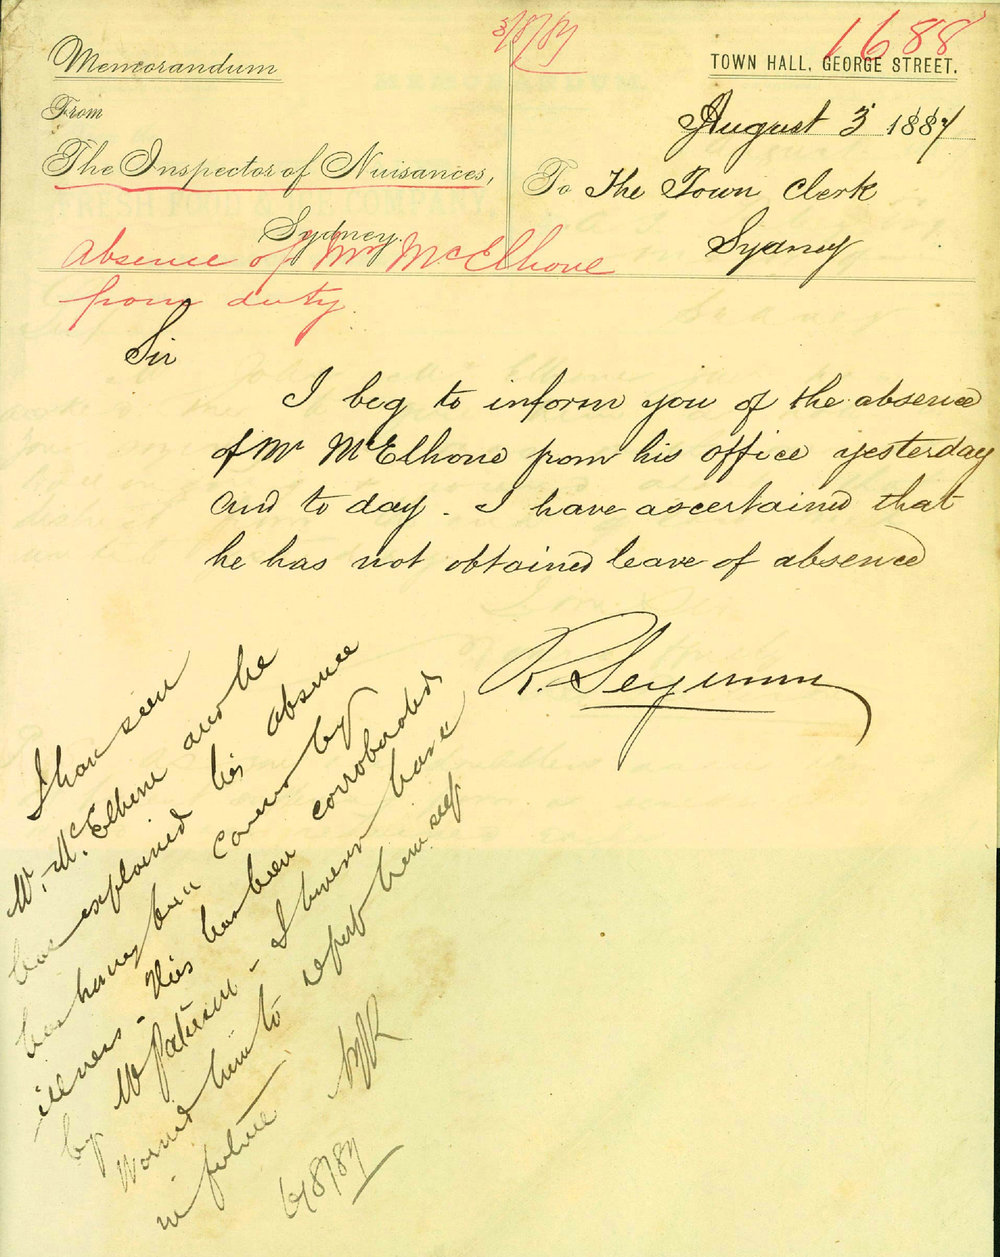 3/8/87
1688
Memorandum
TOWN HALL, GEORGE STREET.
From
August 3 1887
The Inspector of Nuisances,
To The Town Clerk
Sydney.
Sydney
Absence of Mr McElhone
from duty.
Sir
I beg to inform you of the absence
of Mr McElhone from his office yesterday
and to day. I have ascertained that
he has not obtained leave of absence
R. Seymour
I have seen
Mr. McElhone and he
has explained his absence
as having been caused by
illness - This has been corroborated
by Mr - I have
warned him to report himself
in future
6/8/87